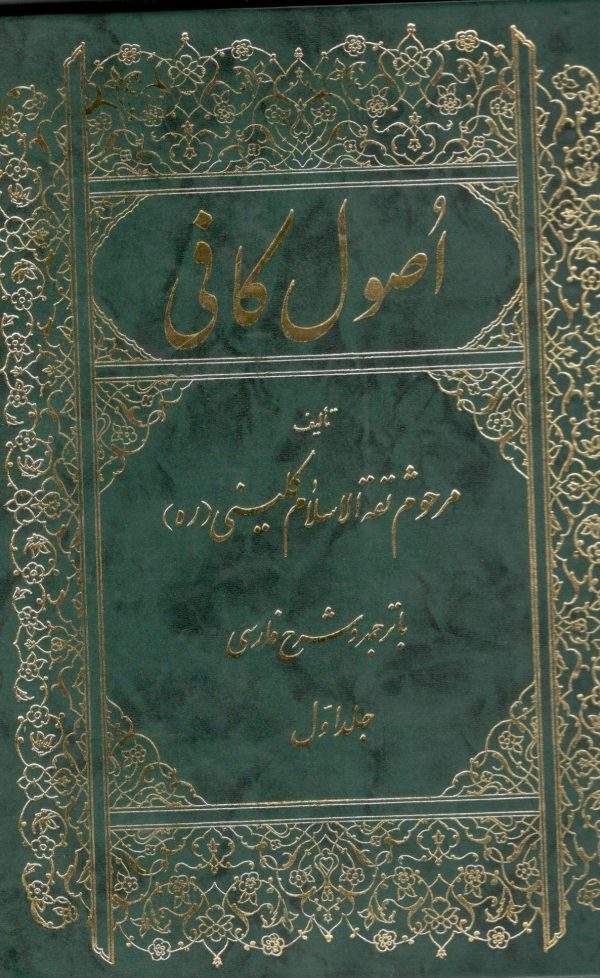 اُصول کافی
تألیف
مرحوم ثقة الاسلام کلینی (ره)
با ترجمه و شرح فارسی
جلد اوّل